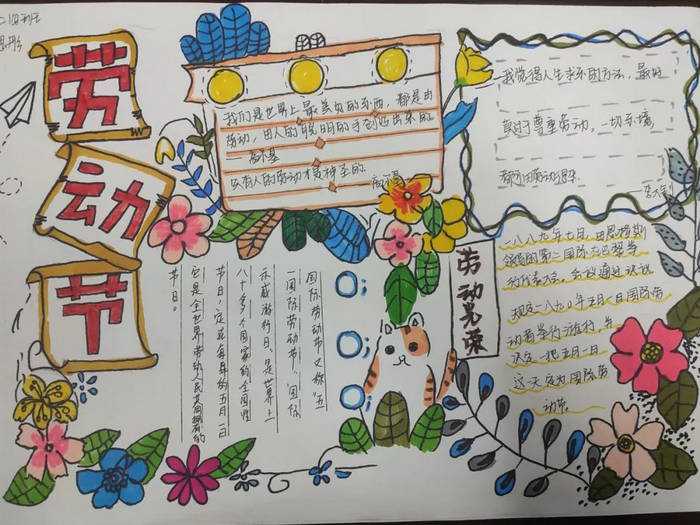 劳
动
节
我们是世界上最美好的东西，都是由
劳动，由人的聪明的手创造出来的。
——高尔基
只有人的劳动才是神圣的
——高尔基
我觉得人生求乐的方法，最好
莫过于尊重劳动，一切乐境，
都可由劳动得来
国际劳动节又称“五
一国际劳动节，“国际
示威游行日，是世界上
八十多个国家的全国性
节日，定在每年的五月一日
它是全世界劳动人民共同拥有的
节日。
劳动光荣
一八八九年七月，由恩格斯
领导的第二国际在巴黎举
行代表大会。会议通过决议
规定一八九〇年五月一日国际劳
动者举行游行，并
决定一把五月一日
这一天定为国际劳
动节